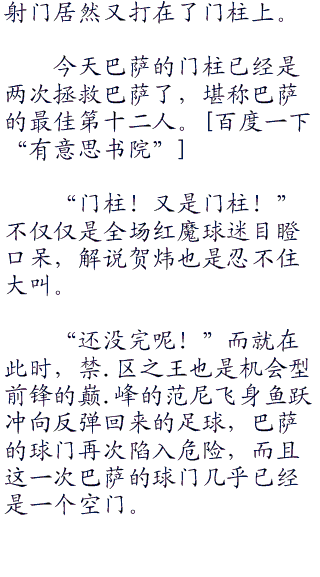 射门居然又打在了门柱上。
今天巴萨的门柱已经是
两次拯救巴萨了，堪称巴萨
的最佳第十二人。[百度一下
“有意思书院”]
“门柱！又是门柱！”
不仅仅是全场红魔球迷目瞪
口呆，解说贺炜也是忍不住
大叫。
“还没完呢！”而就在
此时，禁.区之王也是机会型
前锋的巅.峰的范尼飞身鱼跃
冲向反弹回来的足球，巴萨
的球门再次陷入危险，而且
这一次巴萨的球门几乎已经
是一个空门。